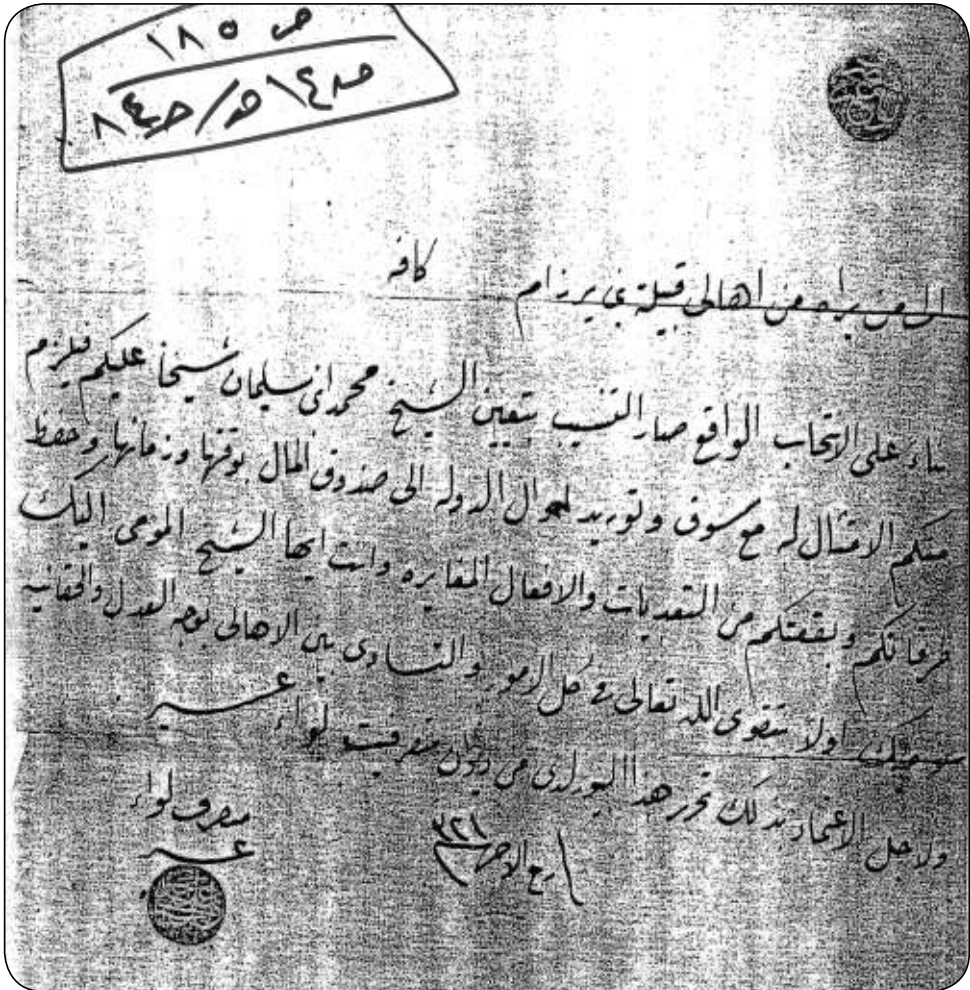 ص ١٨٥
الى من يراه من اهالى قبيلة بنى يرزام كافه
بناءً على الانتخاب الواقع صار التنسيب بتعين الشيخ محمد ابن سليمان شيخاً عليكم فيلزم
منكم الامتثال له مع سوق وتوريد اموال الدوله الى صندوق المال بوقتها وزمانها وحفظ
فرقاتكم وبقعتكم من التعديات والافعال المغايره وانت ايها الشيخ المومى اليك
نوصيك اولا بتقوى الله تعالى فى كل الامور والتساوى بين الاهالى بوجه العدل والحقانيه
ولاجل الاعتماد بذلك تحرر هذا البيورلدى من ديوان متصرفيت لواء عسير
متصرف لواء
عسير
٣٢١